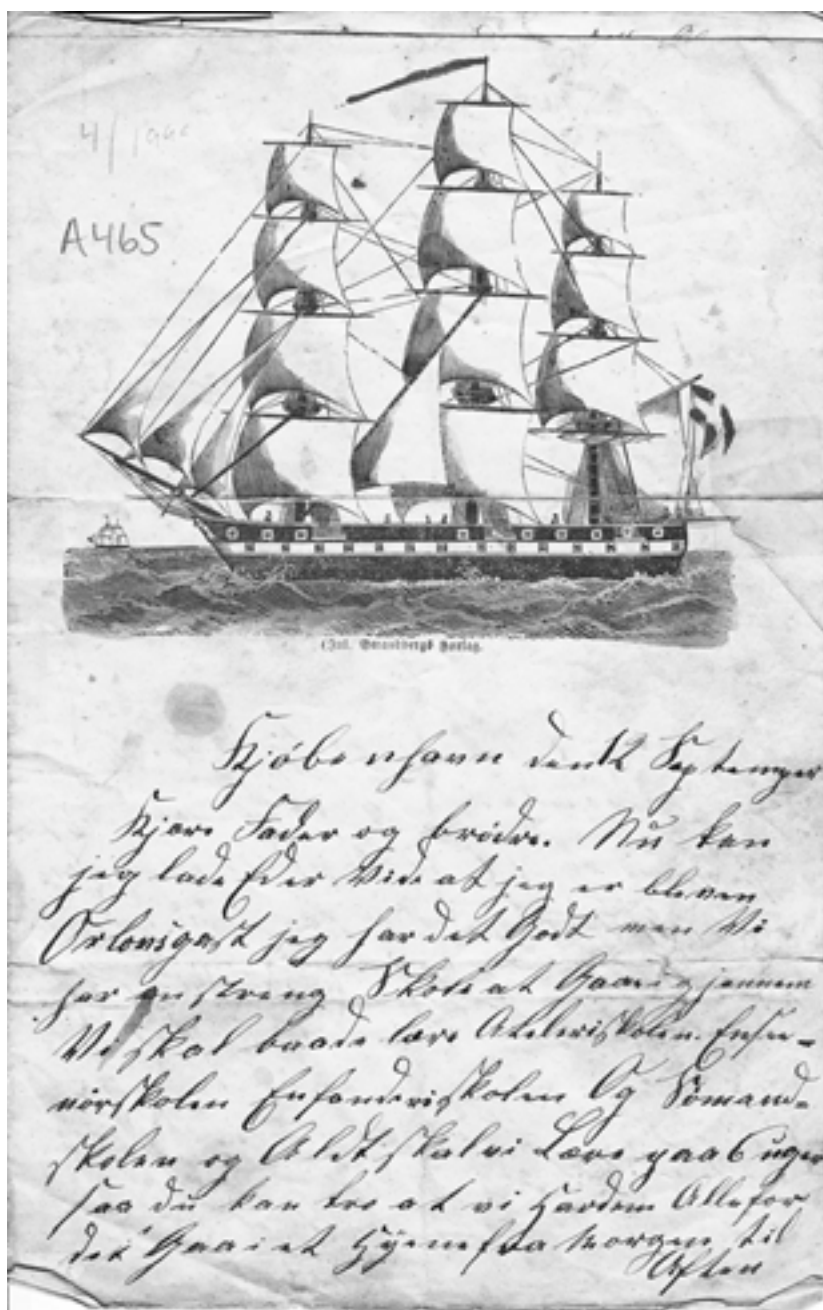 4/1990
A465
Jul. Strandbergs Forlag.
Kjøbenhavn den 12 Septemper
Kjære Fader og brødre. Nu kan
jeg lade Eder Vide at jeg er bleven
Orlovsgast jeg har det Godt men Vi
har en streng Skole at Gaae igjennem
Vi skal baade lære Ateleriskolen. Ensen-
nörskolen Enfanderiskolen Og Sömand-
skolen og Aldt skal vi Lære paa 6 uger
saa du kan tro at vi Har dem Alle for
det Gaar i et Hyene fra Morgen til
Aften